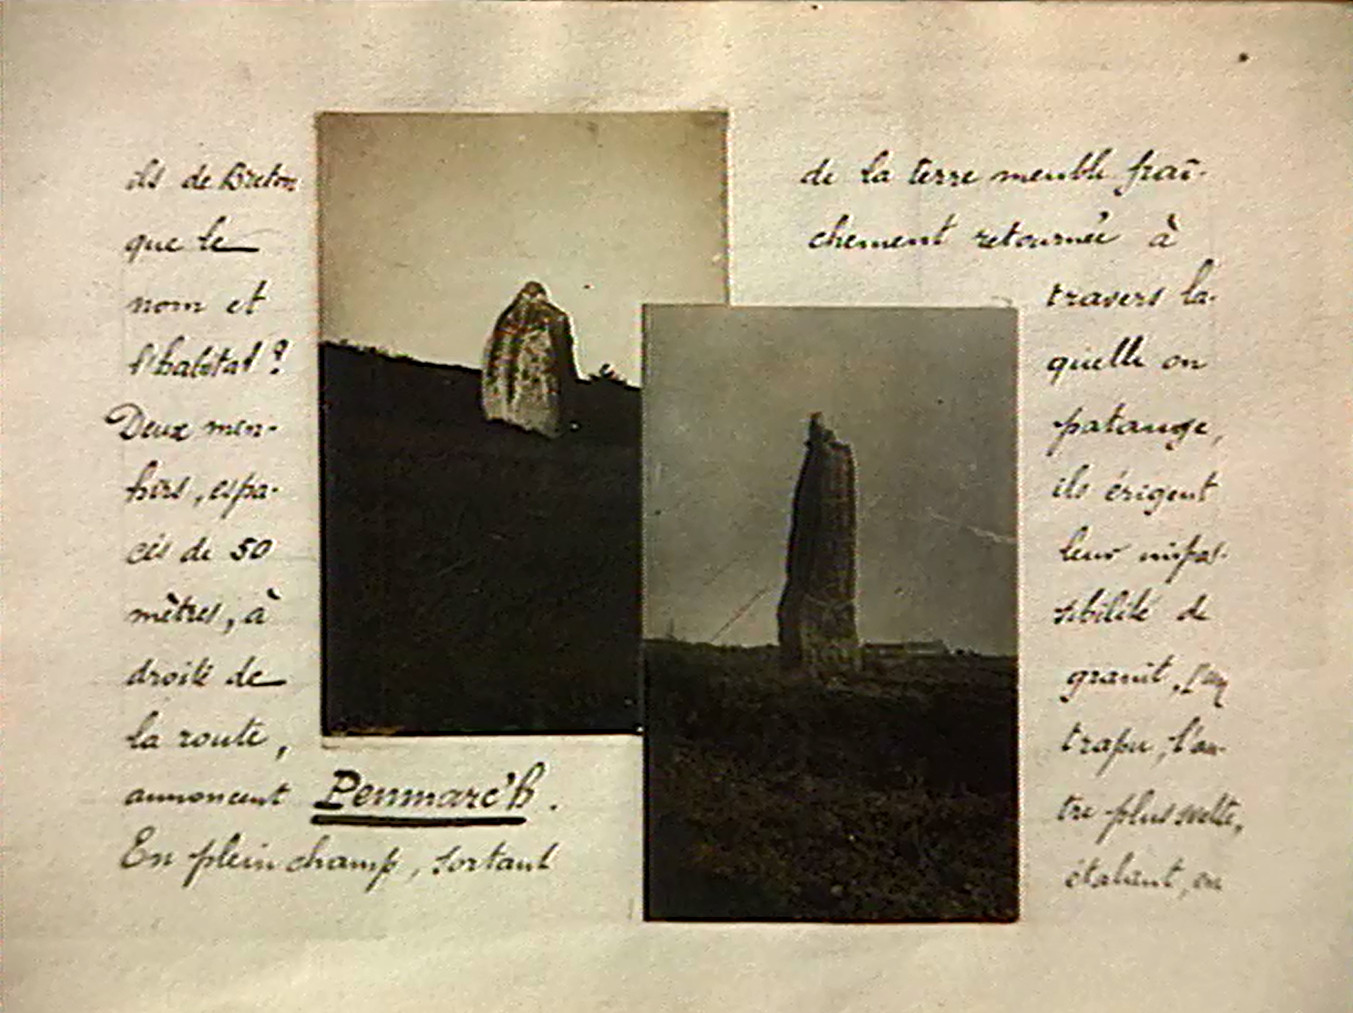 ils de Breton
que le
nom et
l'habitat ?
Deux men-
hirs, espa-
cés de 50
mètres, à
droite de
la route,
annoncent Penmarc'h.
En plein champ, sortant
de la terre meuble fraî-
chement retournée à
travers la-
quelle on
patauge,
ils érigent
leur impas-
sibilité de
granit, l'un
trapu, l'au-
tre plus svelte,
étalant, en